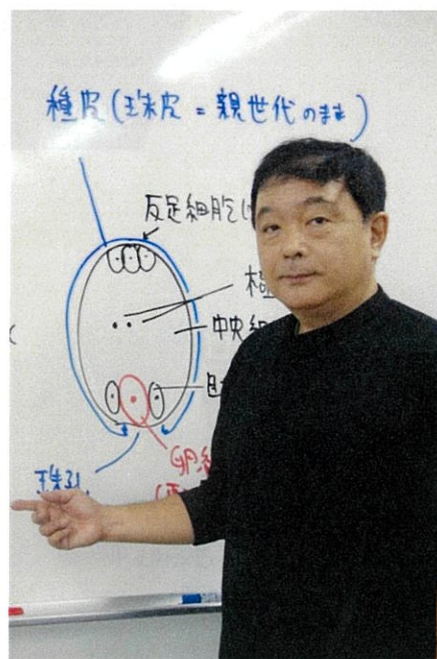 種皮(珠皮 = 親世代のまま)
反足細胞
極
中央細
珠孔
卵細